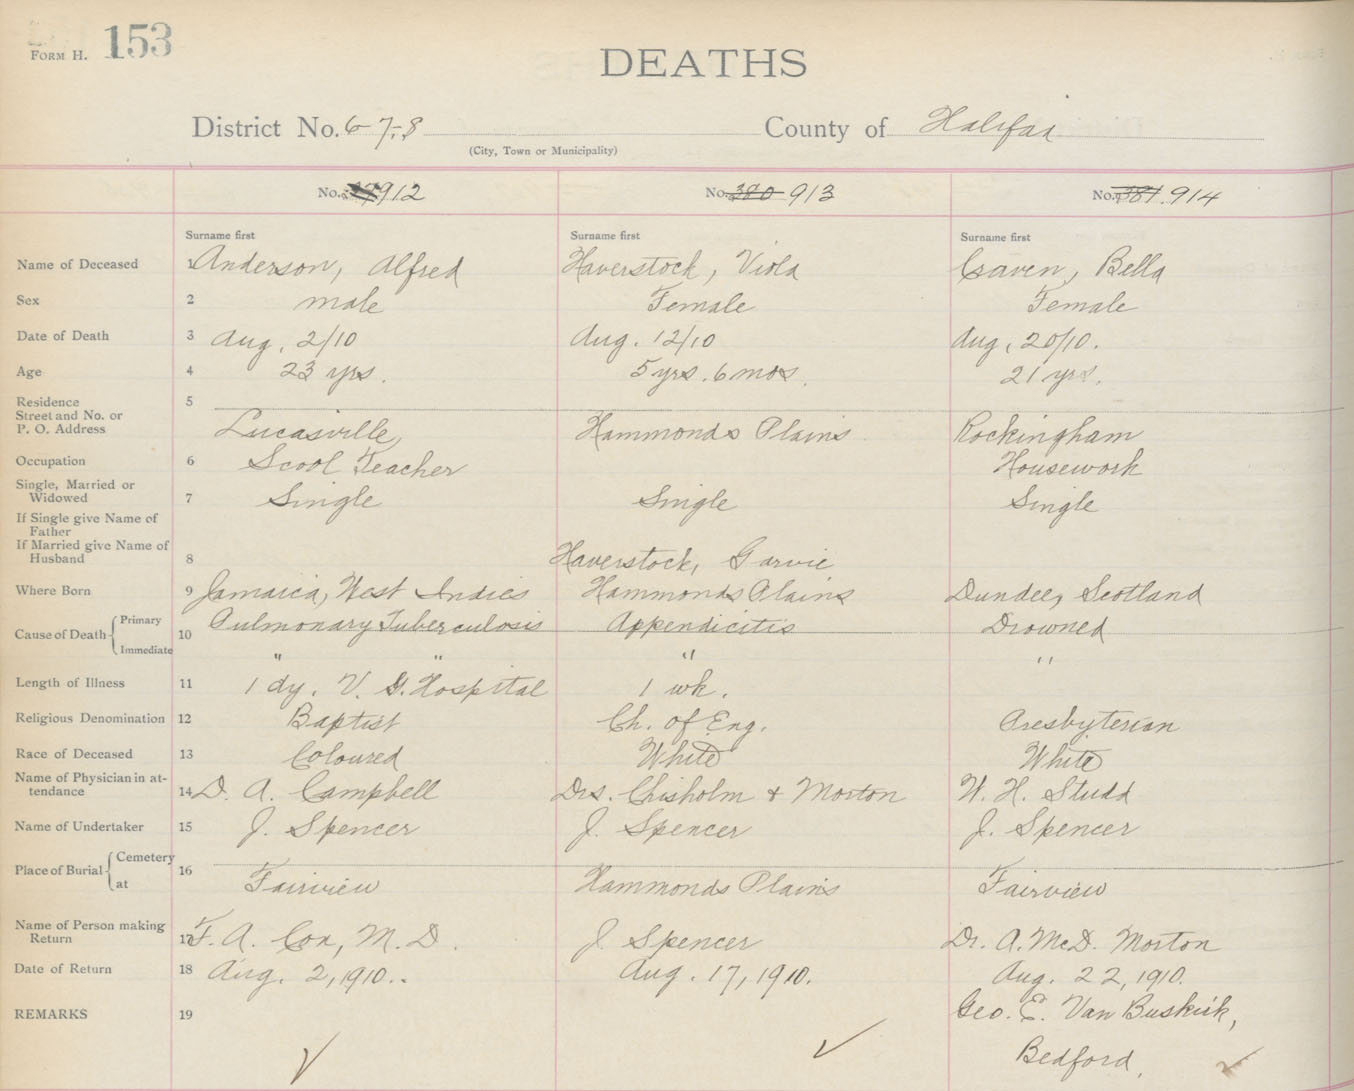 FORM H. 153
DEATHS
District No. 6-7-8 County of Halifax
(City, Town or Municipality)
No. 912 No. 380 913 No. 381. 914
Surname first Surname first Surname first
Name of Deceased 1 Anderson, Alfred Haverstock, Viola Craven, Bella
Sex 2 male Female Female
Date of Death 3 Aug. 2/10 Aug. 12/10 Aug. 20/10.
Age 4 23 yrs. 5 yrs. 6 mos. 21 yrs.
Residence 5
Street and No. or
P. O. Address Lucasville, Hammonds Plains Rockingham
Occupation 6 Scool Teacher Housework
Single, Married or
Widowed 7 Single Single Single
If Single give Name of
Father
If Married give Name of
Husband 8 Haverstock, Garvie
Where Born 9 Jamaica, West Indies Hammonds Plains Dundee, Scotland
Cause of Death { Primary 10 Pulmonary Tuberculosis Appendicitis Drowned
Immediate " " " "
Length of Illness 11 1 dy. V. G. Hospital 1 wk.
Religious Denomination 12 Baptist Ch. of Eng. Presbyterian
Race of Deceased 13 Coloured White White
Name of Physician in at-
tendance 14 D. A. Campbell Drs. Chisholm & Morton W. H. Studd
Name of Undertaker 15 J. Spencer J. Spencer J. Spencer
Place of Burial { Cemetery 16
at Fairview Hammonds Plains Fairview
Name of Person making
Return 17 F. A. Cox, M. D. J. Spencer Dr. A. McD. Morton
Date of Return 18 Aug. 2, 1910.. Aug. 17, 1910. Aug. 22, 1910.
REMARKS 19 Geo. E. Van Buskirk,
Bedford.